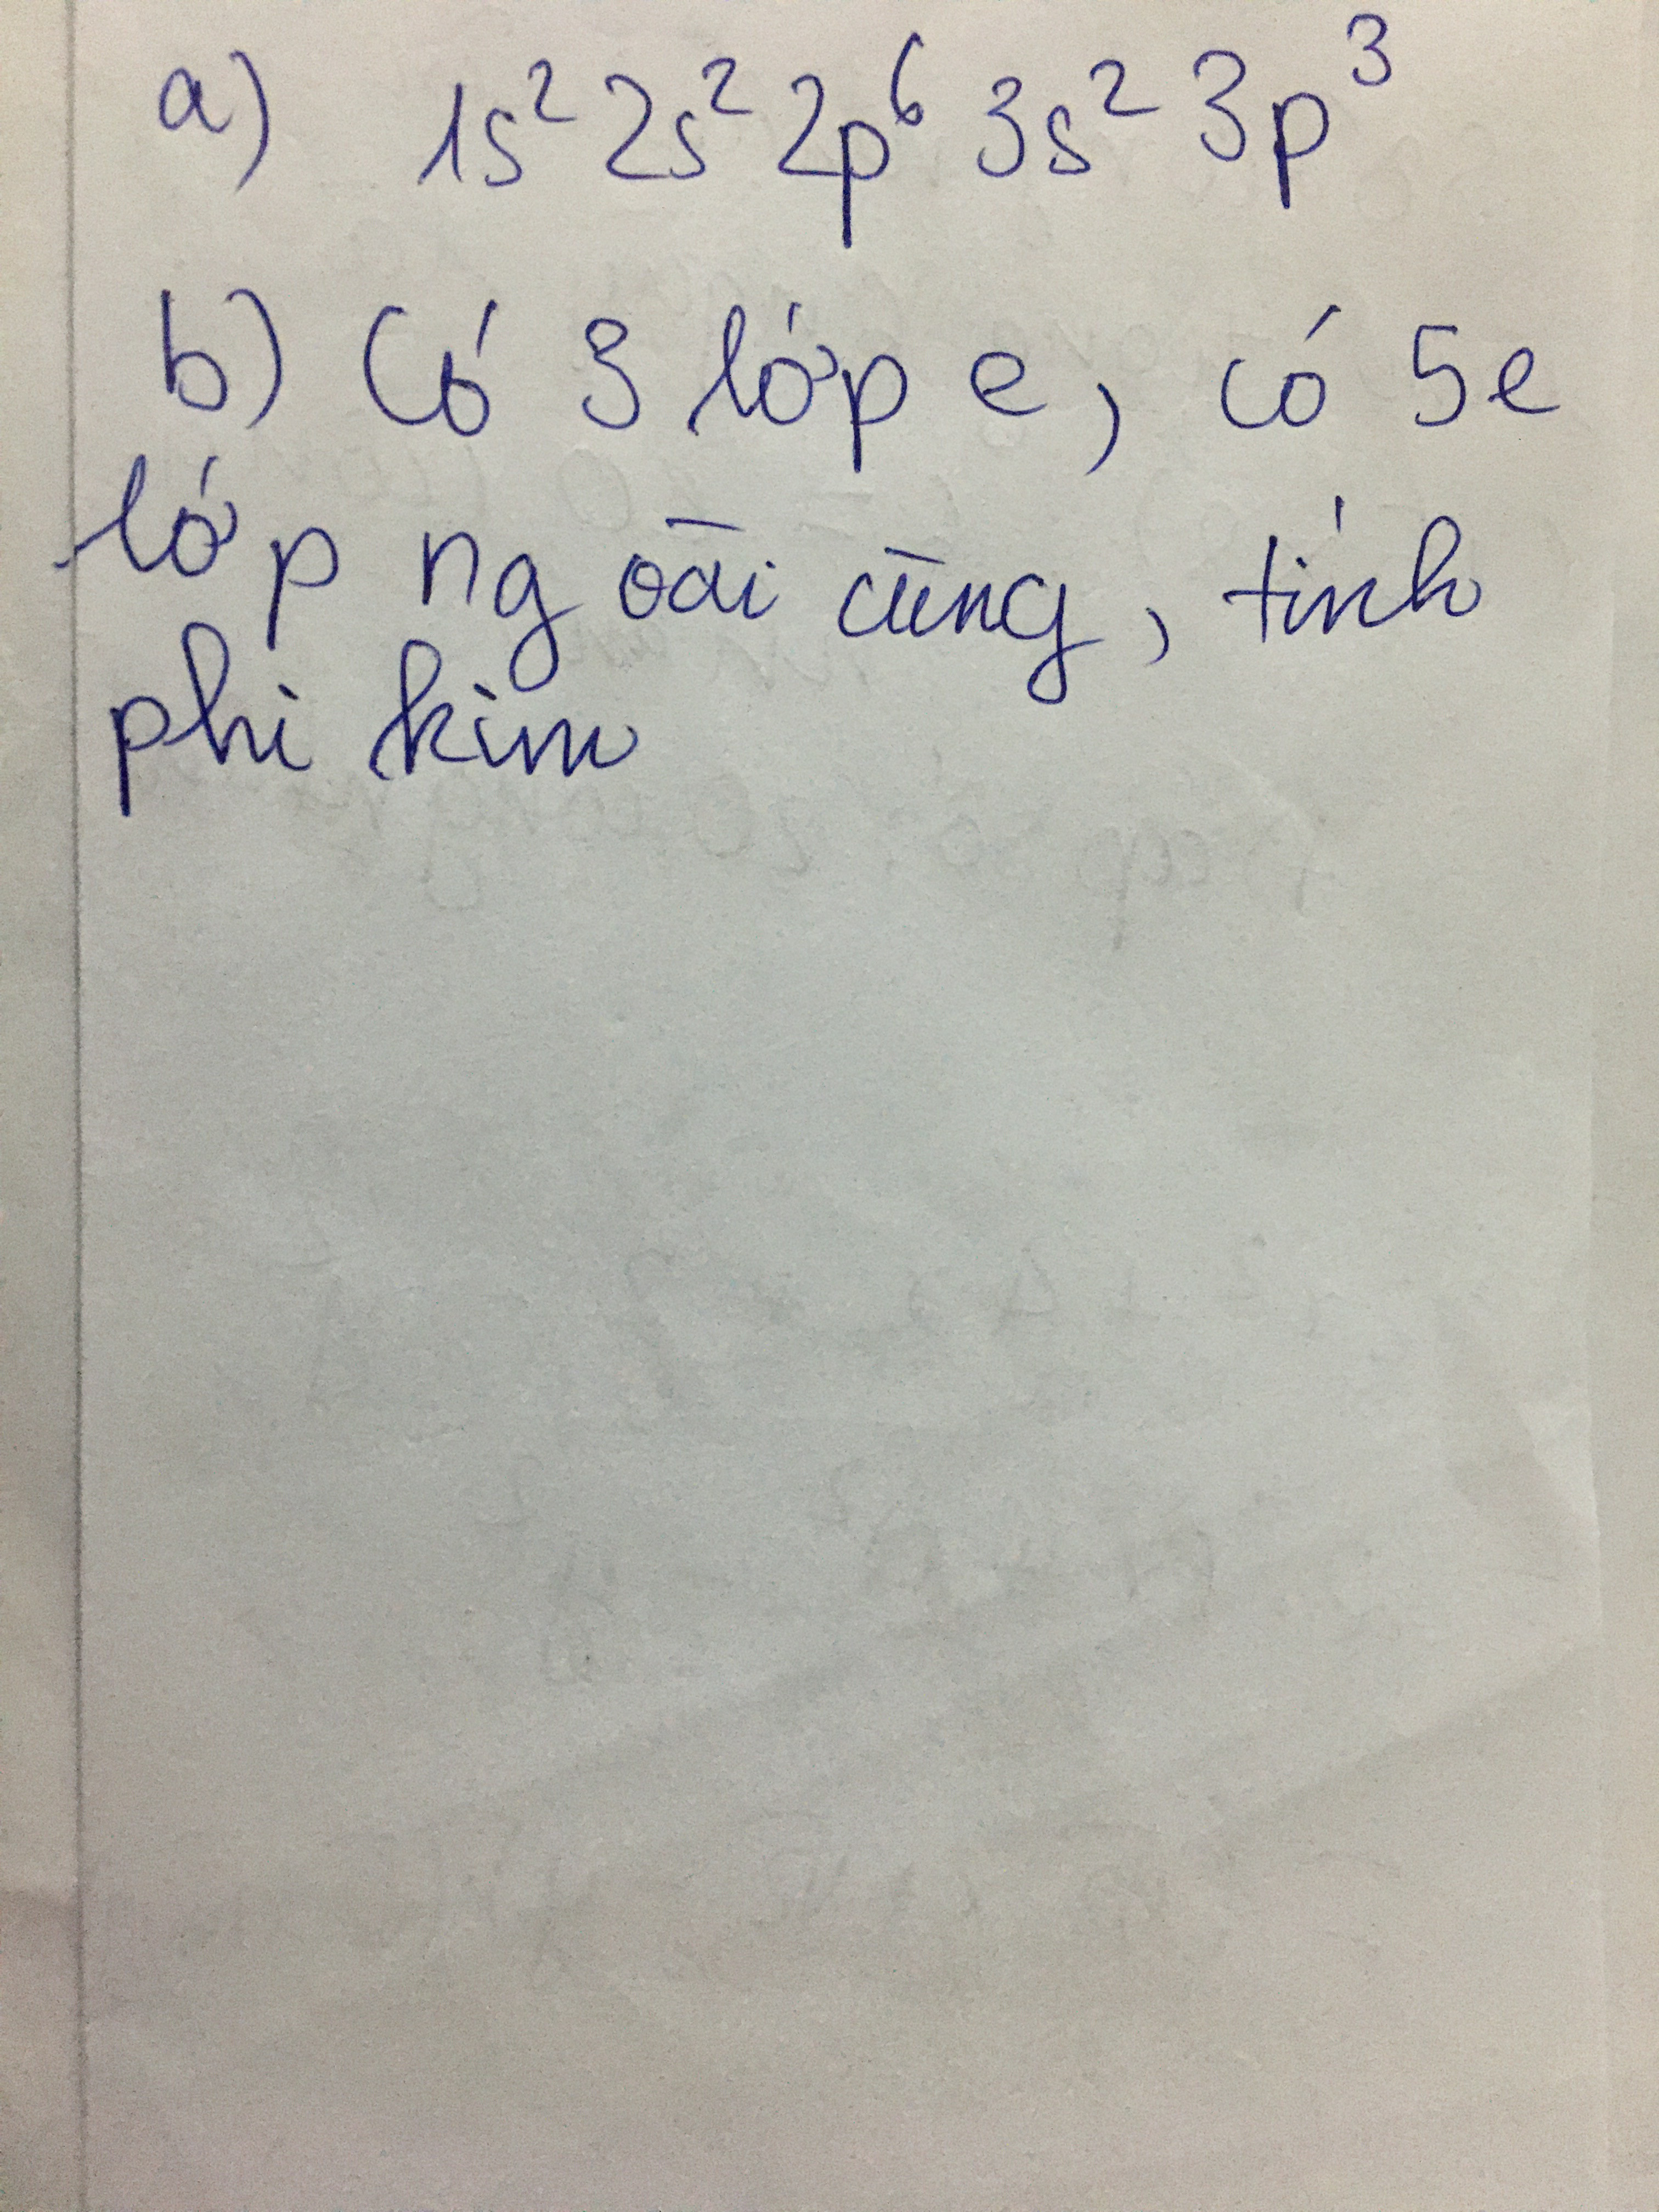 a) 1s² 2s² 2p⁶ 3s² 3p³
b) Có 3 lớp e, có 5e
lớp ngoài cùng, tính
phi kim